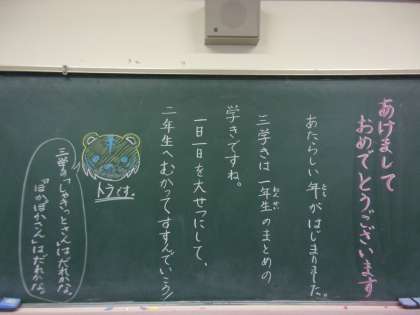 あけまして
おめでとうございます
あたらしい年がはじまりました。
とし
三学きは一年生のまとめの
ねんせい
学きですね。
一日一日を大せつにして、
二年生へむかってすすんでいこう!
三学きの「しゃきっとさんはだれかな。
「ぽかぽかさん」はだれかな。